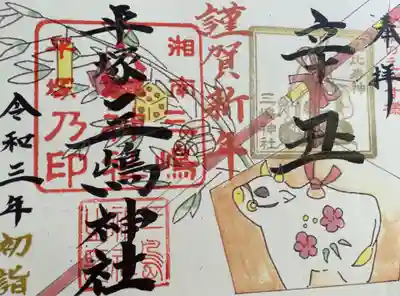 奉拝
辛丑
謹賀新年
三嶋神社
湘南
三嶋
平塚乃印
平塚三嶋神社
令和三年
初詣